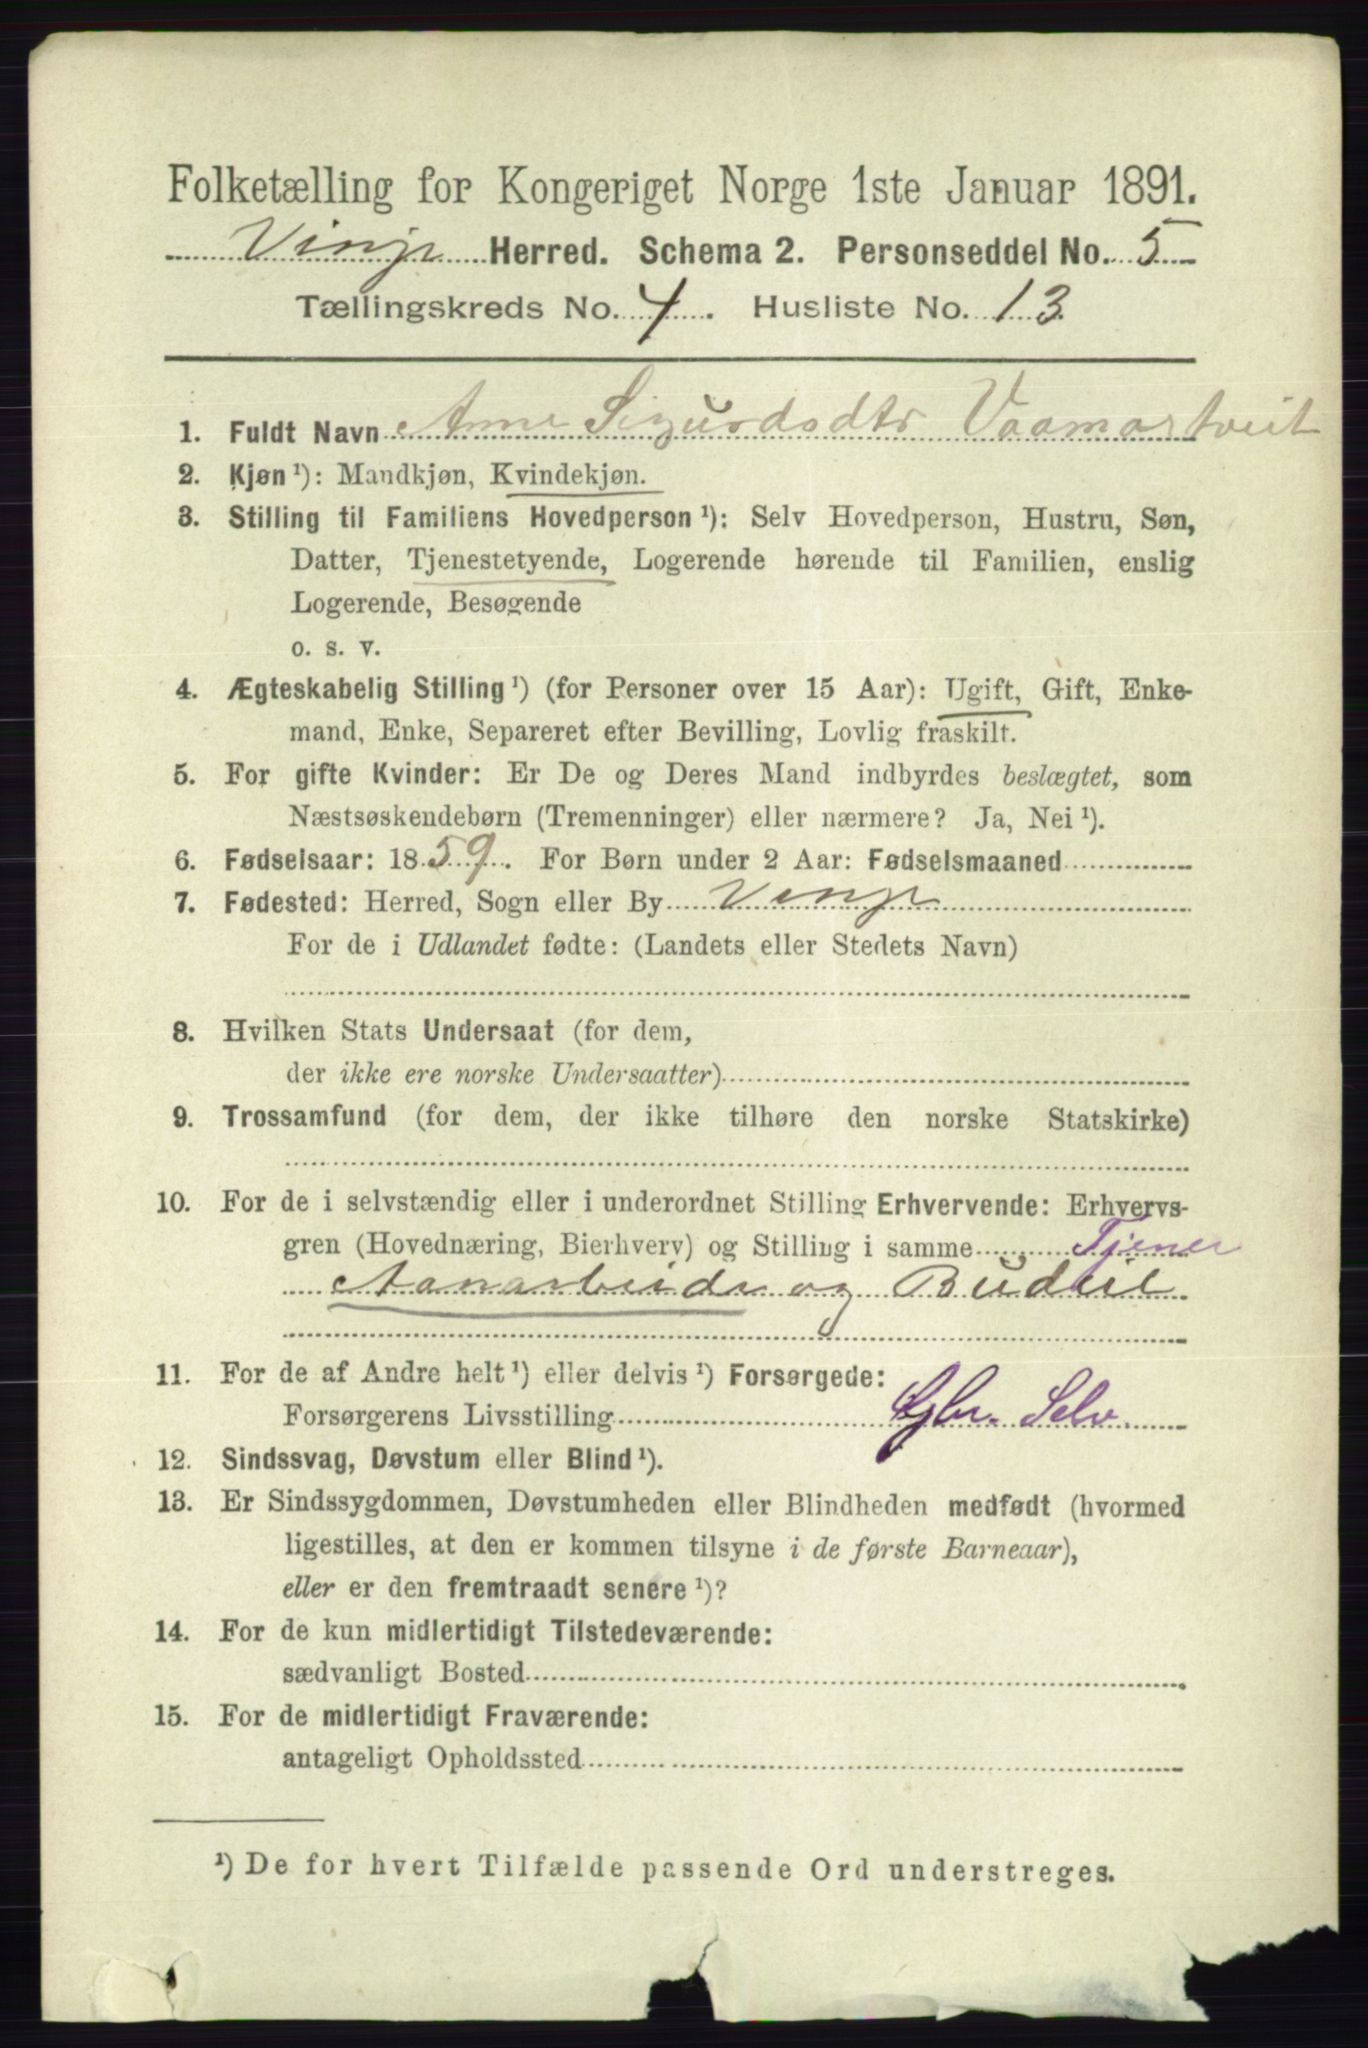 Folketælling for Kongeriget Norge 1ste Januar 1891.
Vinje Herred. Schema 2. Personseddel No. 5
Tællingskreds No. 4. Husliste No. 13.
1. Fuldt Navn Anne Sigurdsdtr Vaamartveit
2. Kjøn ¹): Mandkjøn, Kvindekjøn.
3. Stilling til Familiens Hovedperson ¹): Selv Hovedperson, Hustru, Søn,
Datter, Tjenestetyende, Logerende hørende til Familien, enslig
Logerende, Besøgende
o. s. v.
4. Ægteskabelig Stilling ¹) (for Personer over 15 Aar): Ugift, Gift, Enke-
mand, Enke, Separeret efter Bevilling, Lovlig fraskilt.
5. For gifte Kvinder: Er De og Deres Mand indbyrdes beslægtet, som
Næstsøskendebørn (Tremenninger) eller nærmere? Ja, Nei ¹).
6. Fødselsaar: 1859. For Børn under 2 Aar: Fødselsmaaned
7. Fødested: Herred, Sogn eller By Vinje
For de i Udlandet fødte: (Landets eller Stedets Navn)
8. Hvilken Stats Undersaat (for dem,
der ikke ere norske Undersaatter)
9. Trossamfund (for dem, der ikke tilhøre den norske Statskirke)
10. For de i selvstændig eller i underordnet Stilling Erhvervende: Erhvervs-
gren (Hovednæring, Bierhverv) og Stilling i samme Tjener
Aanarbeide og Budeie
11. For de af Andre helt ¹) eller delvis ¹) Forsørgede:
Forsørgerens Livsstilling Gbr. Selv.
12. Sindssvag, Døvstum eller Blind ¹).
13. Er Sindssygdommen, Døvstumheden eller Blindheden medfødt (hvormed
ligestilles, at den er kommen tilsyne i de første Barneaar),
eller er den fremtraadt senere ¹)?
14. For de kun midlertidigt Tilstedeværende:
sædvanligt Bosted
15. For de midlertidigt Fraværende:
antageligt Opholdssted
¹) De for hvert Tilfælde passende Ord understreges.